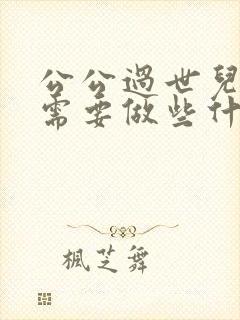 公公過世兒
需要做些什
楓芝舞